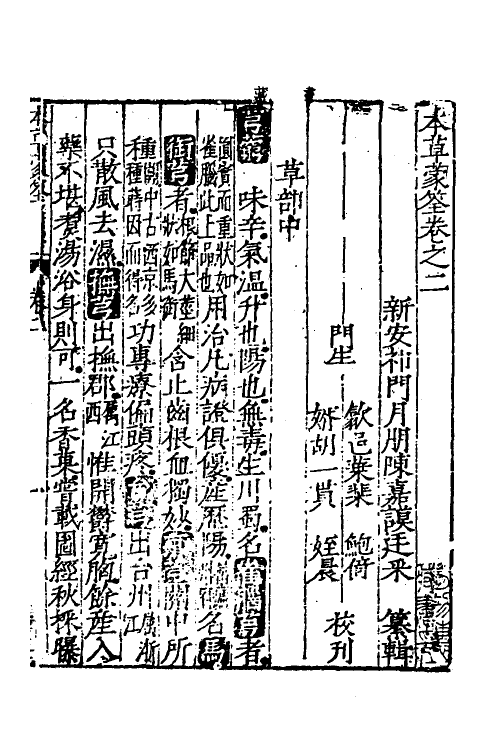 本草蒙筌卷之二
新安祁門月朋陳嘉謨廷采 纂輯
門生
歙邑葉棐 鮑倚
婿胡一貫 姪晨 校刊
草部中
芎藭 味辛氣溫升也陽也無毒生川蜀名雀腦芎者
實而重狀如雀腦此上品也用治凡病證俱優產歷陽名馬
銜芎者根節大莖細狀如馬銜含止齒根血獨妙京芎關中所
種關中古西京多種蒔因而得名功專療偏頭疼台芎出台州屬浙江
只散風去濕撫芎出撫郡屬江西惟開鬱寬胸餘產入
藥不堪煮湯浴身則可一名香果嘗載圖經秋採曝